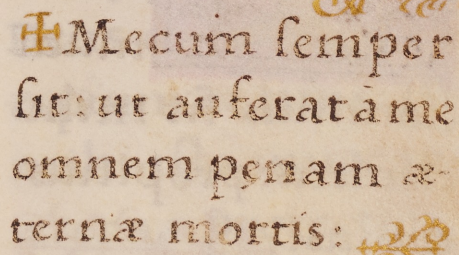 ✠ Mecum ſemper
ſit: ut auferat à me
omnem pęnam æ-
ternæ mortis: